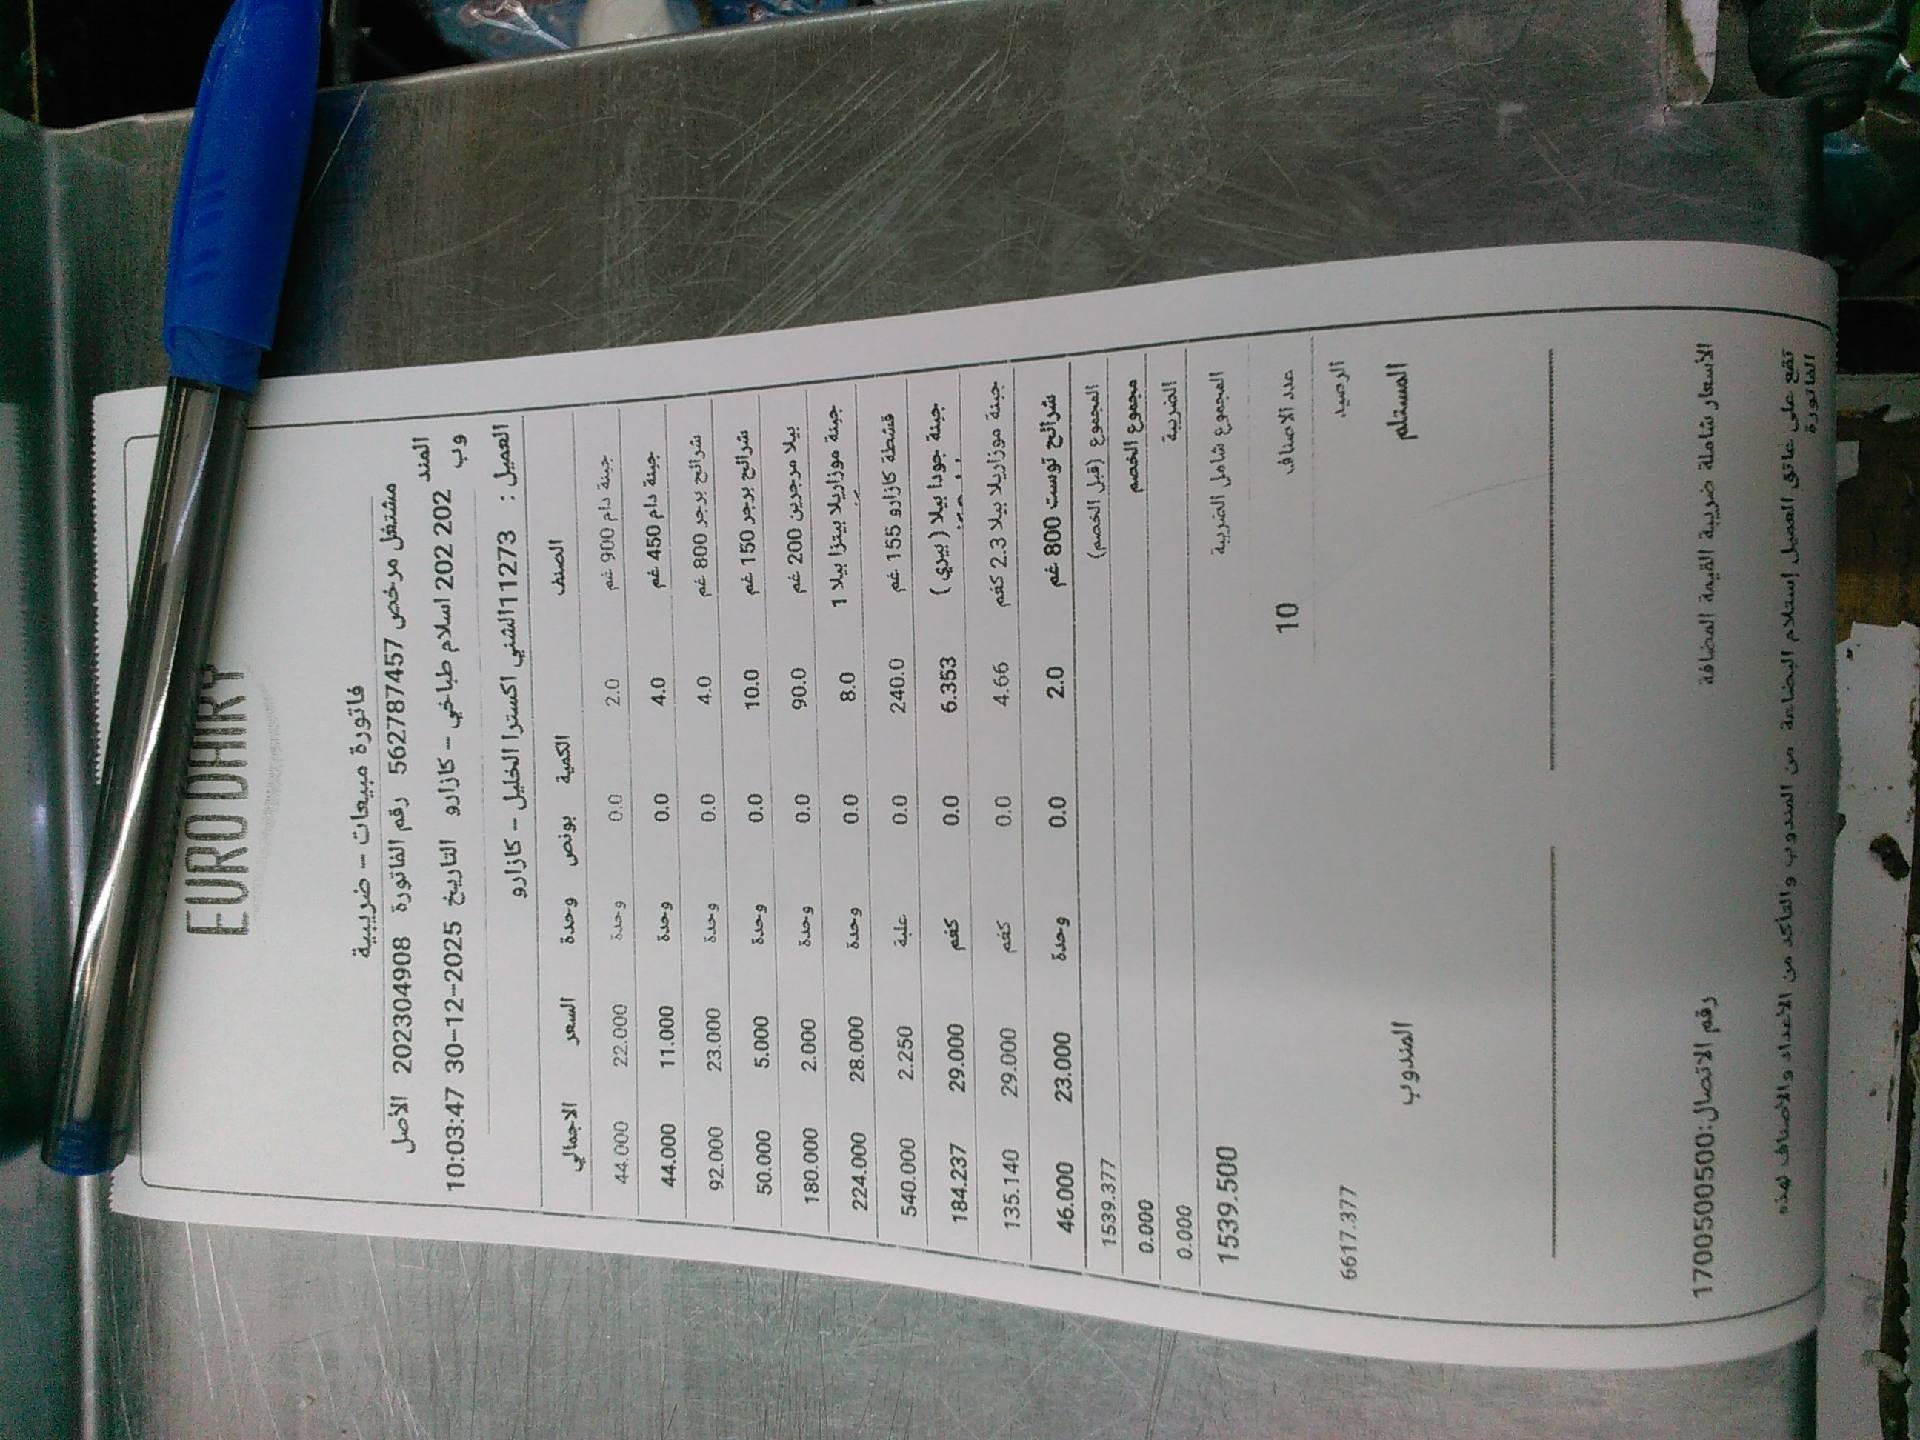 EURODAIRY
فاتورة مبيعات - ضريبية
مشتغل مرخص 562787457 رقم الفاتورة 202304908 الأصل
المندوب 202 202 اسلام طباخي - كازارو التاريخ 30-12-2025 10:03:47
العميل : 11273 الشني اكسترا الخليل - كازارو
الصنف الكمية بونص وحدة السعر الاجمالي
جبنة دام 900 غم 2.0 0.0 وحدة 22.000 44.000
جبنة دام 450 غم 4.0 0.0 وحدة 11.000 44.000
شرائح برجر 800 غم 4.0 0.0 وحدة 23.000 92.000
شرائح برجر 150 غم 10.0 0.0 وحدة 5.000 50.000
بيلا مرجرين 200 غم 90.0 0.0 وحدة 2.000 180.000
جبنة موزاريلا بيتزا بيلا 1 8.0 0.0 وحدة 28.000 224.000
قشطة كازارو 155 غم 240.0 0.0 علبة 2.250 540.000
جبنة جودا بيلا ( بيري ) 6.353 0.0 كغم 29.000 184.237
جبنة موزاريلا بيلا 2.3 كغم 4.66 0.0 كغم 29.000 135.140
شرائح توست 800 غم 2.0 0.0 وحدة 23.000 46.000
المجموع (قبل الخصم) 1539.377
مجموع الخصم 0.000
الضريبة 0.000
المجموع شامل الضريبة 1539.500
عدد الاصناف 10
الرصيد 6617.377
المستلم المندوب
الأسعار شاملة ضريبة القيمة المضافة رقم الاتصال:1700500500
تقع على عاتق العميل إستلام البضاعة من المندوب والتأكد من الاعداد والاصناف لهذه
الفاتورة